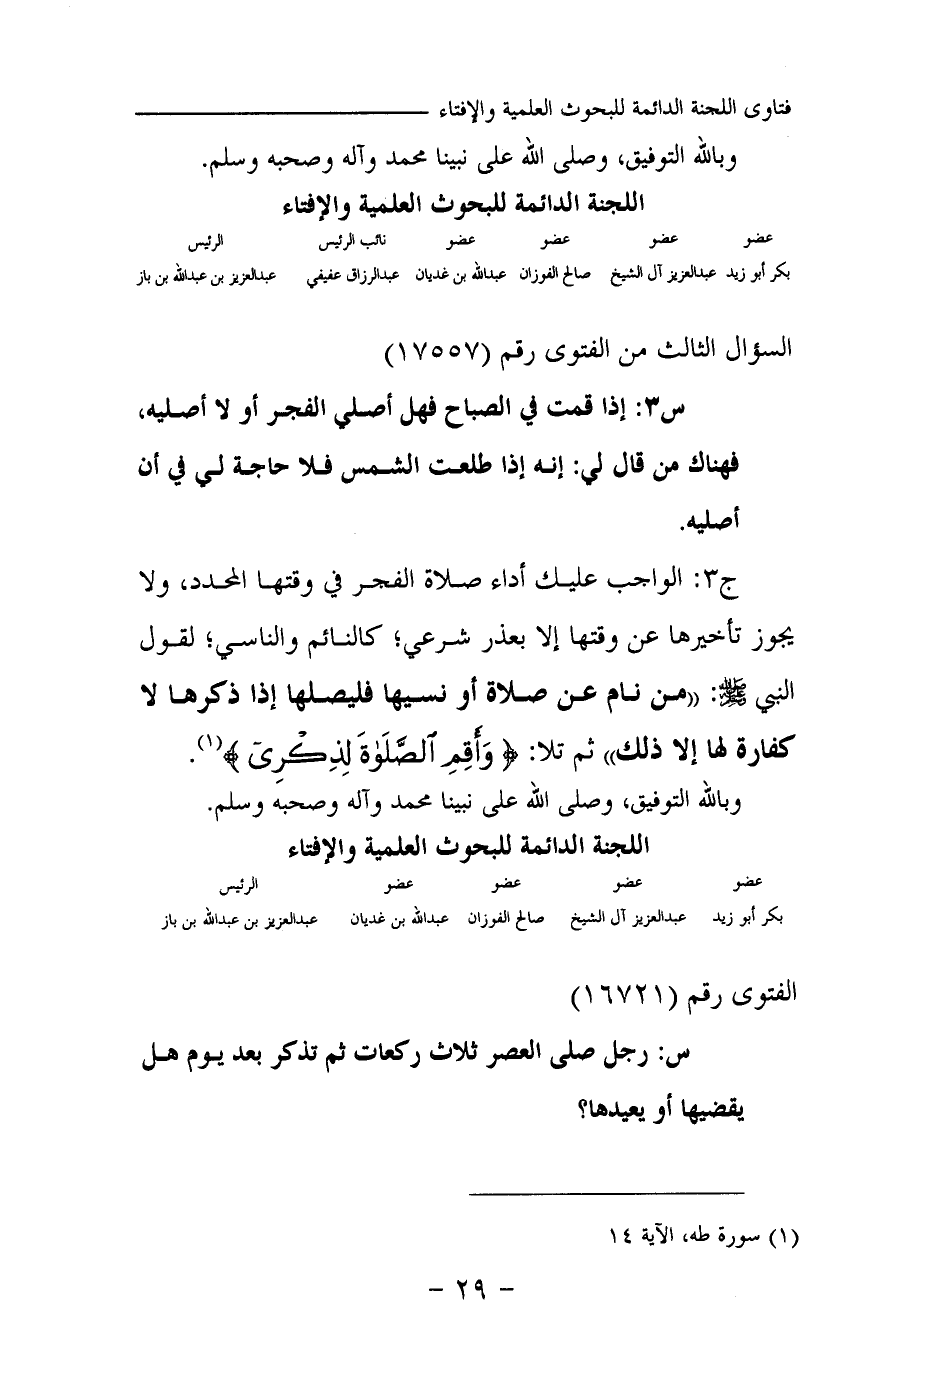 فتاوى اللجنة الدائمة للبحوث العلمية والإفتاء
وبالله التوفيق، وصلى الله على نبينا محمد وآله وصحبه وسلم.
اللجنة الدائمة للبحوث العلمية والإفتاء
عضو عضو عضو عضو نائب الرئيس الرئيس
بكر أبو زيد عبدالعزيز آل الشيخ صالح الفوزان عبدالله بن غديان عبدالرزاق عفيفي عبدالعزيز بن عبدالله بن باز
السؤال الثالث من الفتوى رقم (١٧٥٥٧)
س٣: إذا قمت في الصباح فهل أصلي الفجر أو لا أصليه،
فهناك من قال لي: إنه إذا طلعت الشمس فلا حاجة لي في أن
أصليه.
ج٣: الواجب عليك أداء صلاة الفجر في وقتها المحدد، ولا
يجوز تأخيرها عن وقتها إلا بعذر شرعي؛ كالنائم والناسي؛ لقول
النبي ﷺ: «من نام عن صلاة أو نسيها فليصلها إذا ذكرها لا
كفارة لها إلا ذلك» ثم تلا: ﴿ وَأَقِمِ ٱلصَّلَوٰةَ لِذِكْرِىٓ ﴾(١).
وبالله التوفيق، وصلى الله على نبينا محمد وآله وصحبه وسلم.
اللجنة الدائمة للبحوث العلمية والإفتاء
عضو عضو عضو عضو الرئيس
بكر أبو زيد عبدالعزيز آل الشيخ صالح الفوزان عبدالله بن غديان عبدالعزيز بن عبدالله بن باز
الفتوى رقم (١٦٧٢١)
س: رجل صلى العصر ثلاث ركعات ثم تذكر بعد يوم هل
يقضيها أو يعيدها؟
(١) سورة طه، الآية ١٤
- ٢٩ -